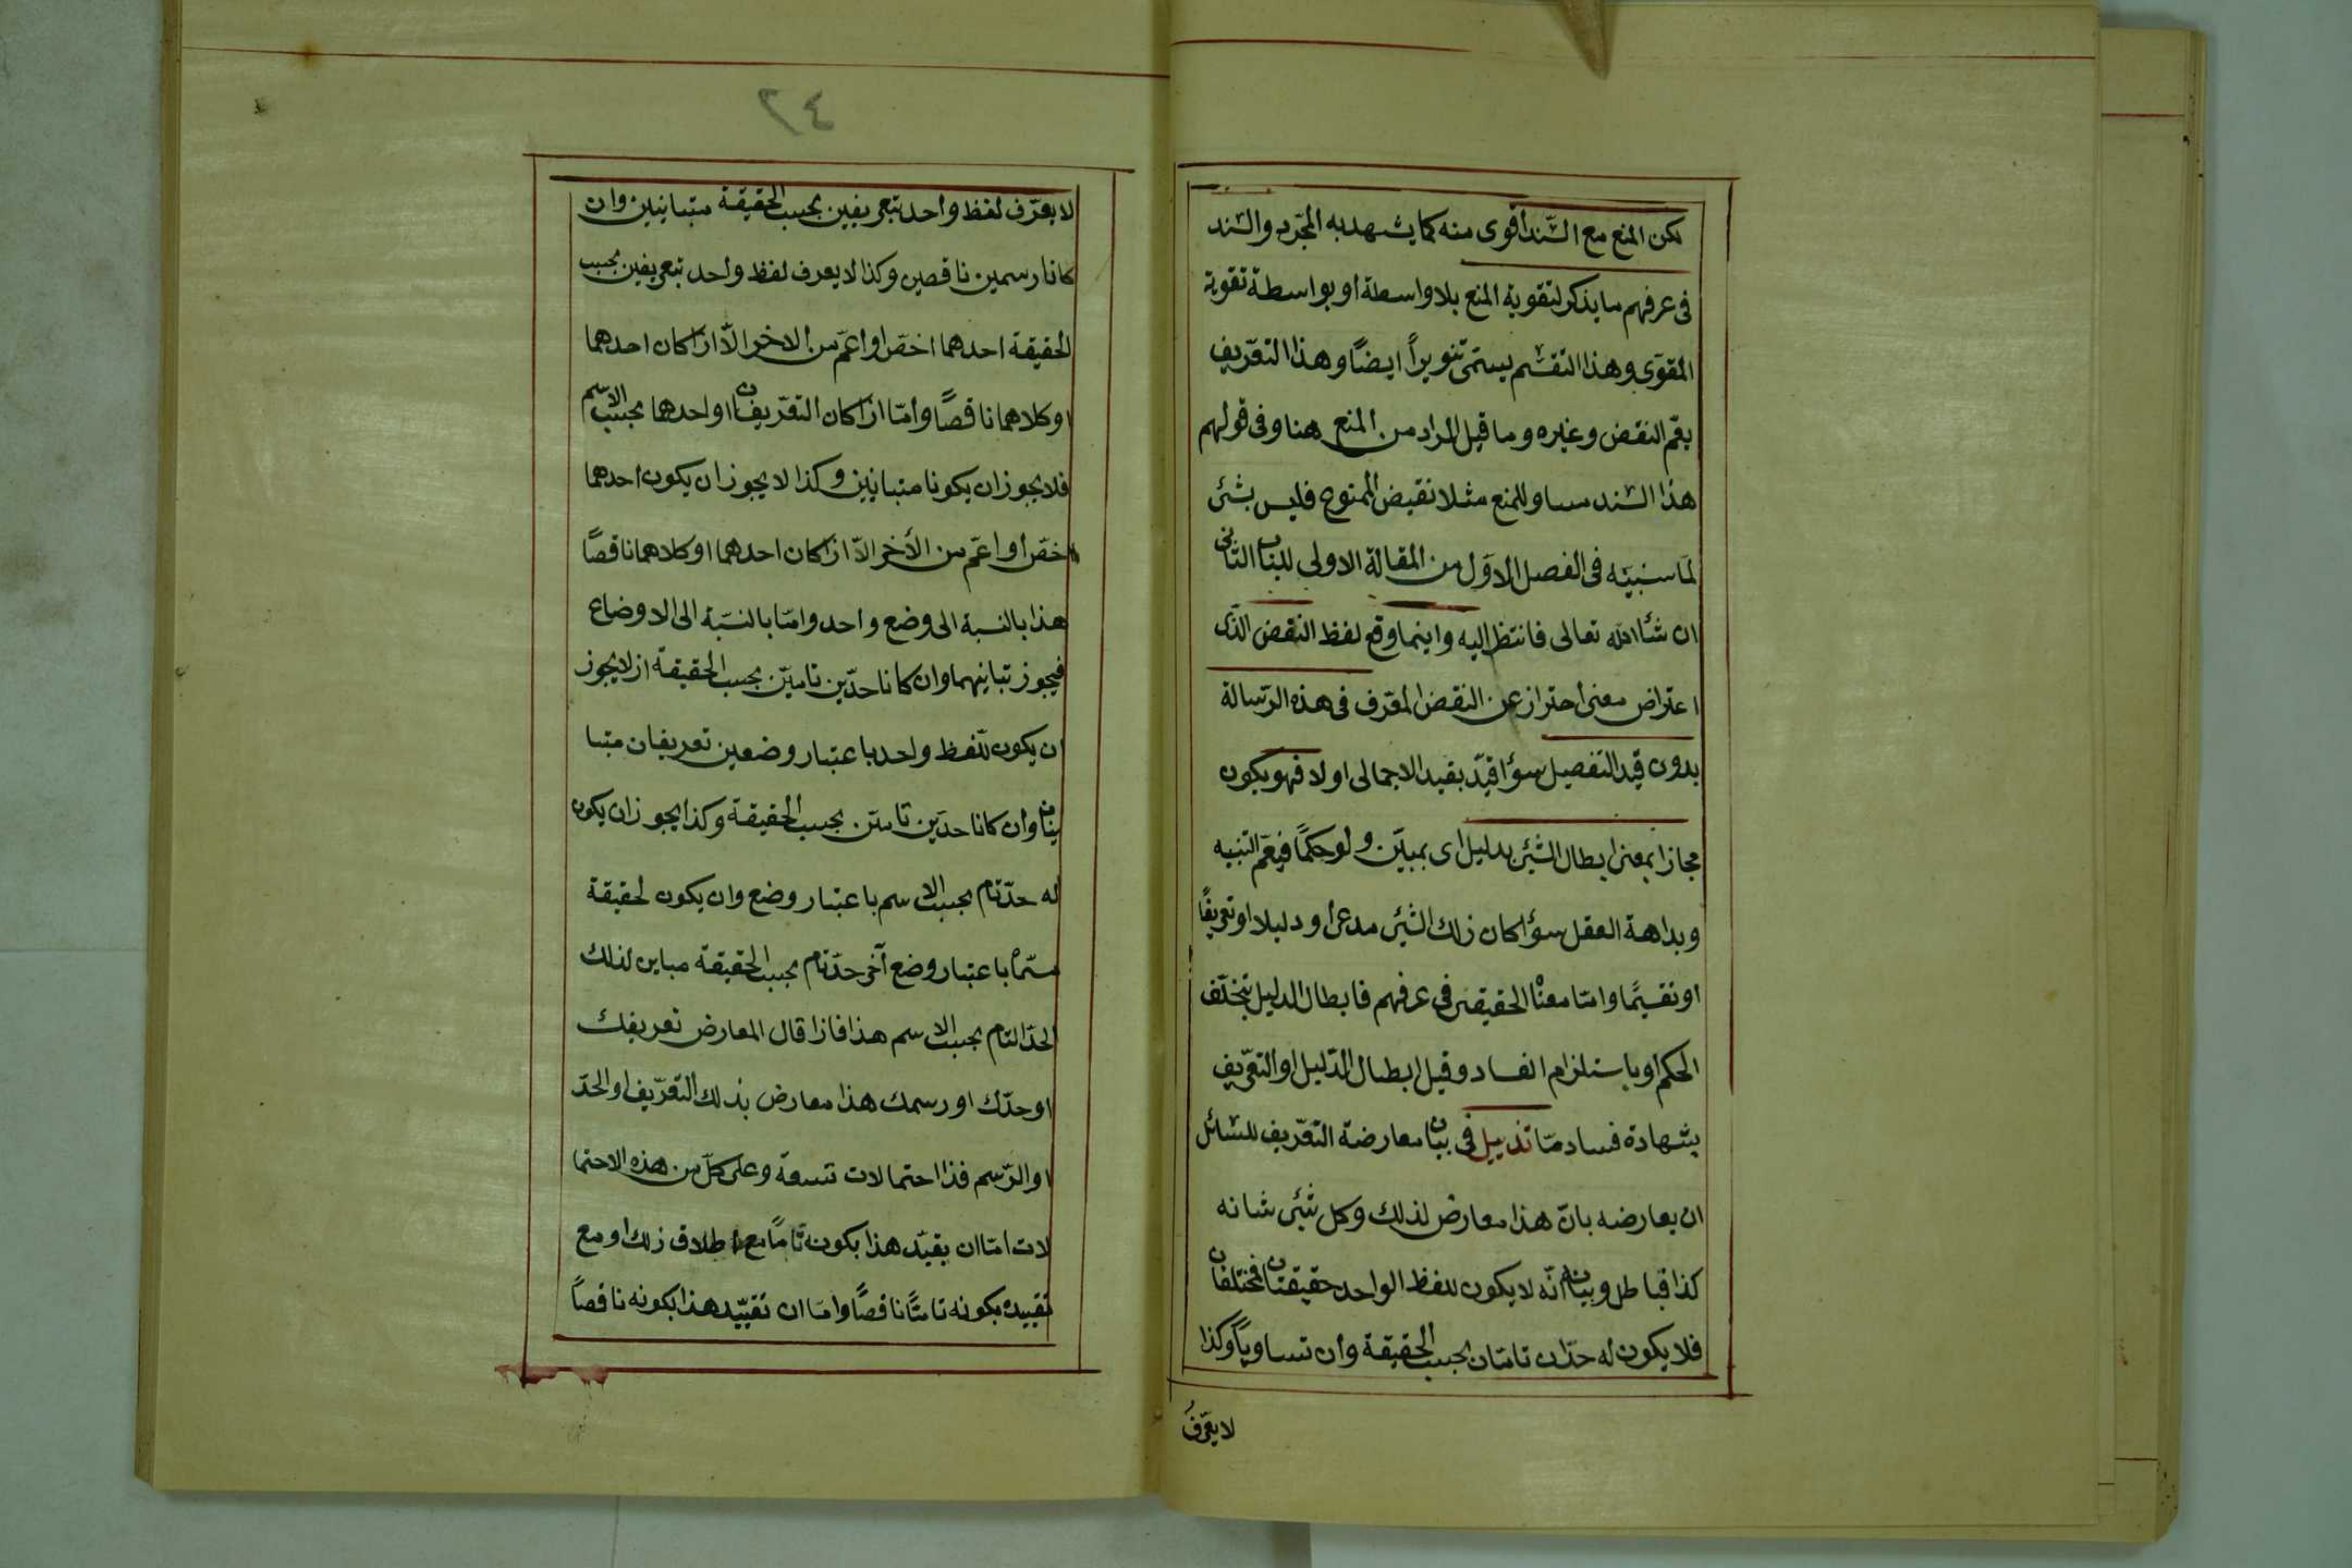 لكن المنع مع السّند أقوى منه كما يشهد به المجّرد والسّند
فى عرفهم ما يذكر لتقوية المنع بلا واسطة او بواسطة تقوية
المقوّى وهذا التفسّم يسمّى تنويراً ايضاً وهذا التعّريف
يعّم النقض وغيره وما قيل المراد من المنع هنا وفى قولهم
هذا السّند مساو للمنع مثلا نقيض الممنوع فليس بشئ
لما سنبيّنه فى الفصل الاوّل من المقالة الاولى للباب الثّانى
ان شأالله تعالى فانتظر اليه واينما وقع لفظ النقض الذّى
اعتراض معنى احتراز عن النقض المعّرف فى هذه الرّسالة
بدون قيد التفصيل سوٱ قيّد بقيد الاجمالى اولا فهو يكون
مجازا بمعنى ابطال الشّئ بدليل اى بمبيّن ولو حكمًا فيعّم التنبيه
وبداهة العقل سوٱ كان ذلك الشّئ مدعى أو دليلا او تعريفًا
او تقسيمًا وامّا معناه الحقيقى فى عرفهم فابطال الدليل بتخلّف
الحكم او باستلزام الفساد وقيل ابطال الدّليل او التعّريف
بشهادة فساد مّا تذييل فى بيان معارضة التعّريف للسّائل
ان يعارضه بانّ هذا معارض لذلك وكل شئ شانه
كذا فباطل وبيانه انّه لا يكون للفظ الواحد حقيقتان مختلفان
فلا يكون له حدّان تامّان بحسب الحقيقة وان تساوياً وكذا
لا يعّرفُ
٢٤
لا يعّرف لفظ واحد بتعريفين بحسب الحقيقة متباينين وان
كانا رسمين ناقصين وكذا لا يعرف لفظ واحد بتعريفين بحسب
الحقيقة احدهما اخصّ او اعمّ من الاخر الاّ اذا كان احدهما
او كلاهما ناقصًا وأمّا اذا كان التعّريفان او احدهما بحسب الاسّم
فلا يجوز ان يكونا متباينين وكذا لا يجوز ان يكون احدهما
اخصّ او اعمّ من الأخر الاّ اذا كان احدهما او كلاهما ناقصًا
هذا بالنسبة الى وضع واحد وامّا بالنسّبة الى الاوضاع
فيجوز تباينهما وان كانا حدّين تامّين بحسب الحقيقة اذ لا يجوز
ان يكون للّفظ واحد باعتبار وضعين تعريفان متبا
ينان وان كانا حدّين تامّين بحسب الحقيقة وكذا يجوز ان يكون
له حدّ تام بحسب الاسم باعتبار وضع وان يكون لحقيقة
مسّماه باعتبار وضع آخر حدّ تام بحسب الحقيقة مباين لذلك
الحدّ التام بحسب الاسم هذا فاذا قال المعارض تعريفك
او حدّك او رسمك هذا معارض بذلك التعّريف او الحدّ
او الرّسم فذا احتمالات تسعة وعلى كلّ من هذه الاحتما
لات امّا ان يقيّد هذا بكونه تامًّا مع اطلاق ذلك او مع
تقييده بكونه تامًّا ناقصًا وامّا ان تقيّيد هذا بكونه ناقصاً